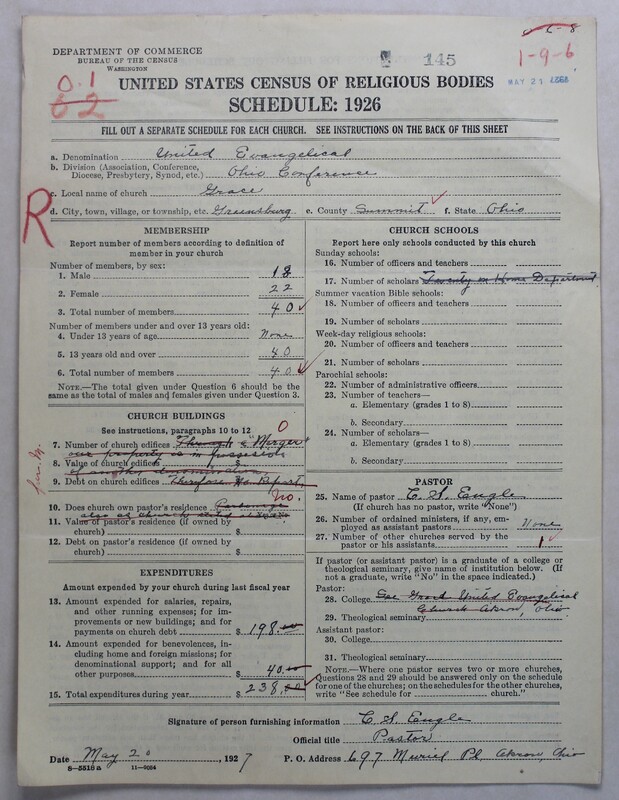 6-8
DEPARTMENT OF COMMERCE
BUREAU OF THE CENSUS
WASHINGTON
145
1-9-6
MAY 21
0.1
62
UNITED STATES CENSUS OF RELIGIOUS BODIES
SCHEDULE: 1926
FILL OUT A SEPARATE SCHEDULE FOR EACH CHURCH. SEE INSTRUCTIONS ON THE BACK OF THIS SHEET
a. Denomination United Evangelical
b. Division (Association, Conference, Diocese, Presbytery, Synod, etc.) Ohio Conference
c. Local name of church Grace
d. City, town, village, or township, etc. Greensburg e. County Summit f. State Ohio
R
MEMBERSHIP
Report number of members according to definition of
member in your church
Number of members, by sex:
1. Male 18
2. Female 22
3. Total number of members 40
Number of members under and over 13 years old:
4. Under 13 years of age None
5. 13 years old and over 40
6. Total number of members 40
NOTE.—The total given under Question 6 should be the
same as the total of males and females given under Question 3.
CHURCH BUILDINGS
See instructions, paragraphs 10 to 12
0
7. Number of church edifices Through a "Merger"
our property is in possession
8. Value of church edifices $
of another denomination
9. Debt on church edifices Therefore No Report
no.
10. Does church own pastor's residence Parsonage
11. Value of pastor's residence (if owned by
church) $
12. Debt on pastor's residence (if owned by
church) $
EXPENDITURES
Amount expended by your church during last fiscal year
13. Amount expended for salaries, repairs,
and other running expenses; for im-
provements or new buildings; and for
payments on church debt $ 198.00
14. Amount expended for benevolences, in-
cluding home and foreign missions; for
denominational support; and for all
other purposes $ 40.00
15. Total expenditures during year $ 238.00
CHURCH SCHOOLS
Report here only schools conducted by this church
Sunday schools:
16. Number of officers and teachers
17. Number of scholars Twenty on Home Department
Summer vacation Bible schools:
18. Number of officers and teachers
19. Number of scholars
Week-day religious schools:
20. Number of officers and teachers
21. Number of scholars
Parochial schools:
22. Number of administrative officers
23. Number of teachers—
a. Elementary (grades 1 to 8)
b. Secondary
24. Number of scholars—
a. Elementary (grades 1 to 8)
b. Secondary
PASTOR
25. Name of pastor C. S. Engle
(If church has no pastor, write "None")
26. Number of ordained ministers, if any, em-
ployed as assistant pastors None
27. Number of other churches served by the
pastor or his assistants 1
If pastor (or assistant pastor) is a graduate of a college or
theological seminary, give name of institution below. (If
not a graduate, write "No" in the space indicated.)
Pastor:
28. College See Grace United Evangelical
Church Akron, Ohio.
29. Theological seminary
Assistant pastor:
30. College
31. Theological seminary
NOTE.—Where one pastor serves two or more churches,
Questions 28 and 29 should be answered only on the schedule
for one of the churches; on the schedules for the other churches,
write "See schedule for church."
Signature of person furnishing information C. S. Engle
Official title Pastor
Date May 20, 1927 P. O. Address 697 Muriel Pl, Akron, Ohio
8-5518 a 11-9064